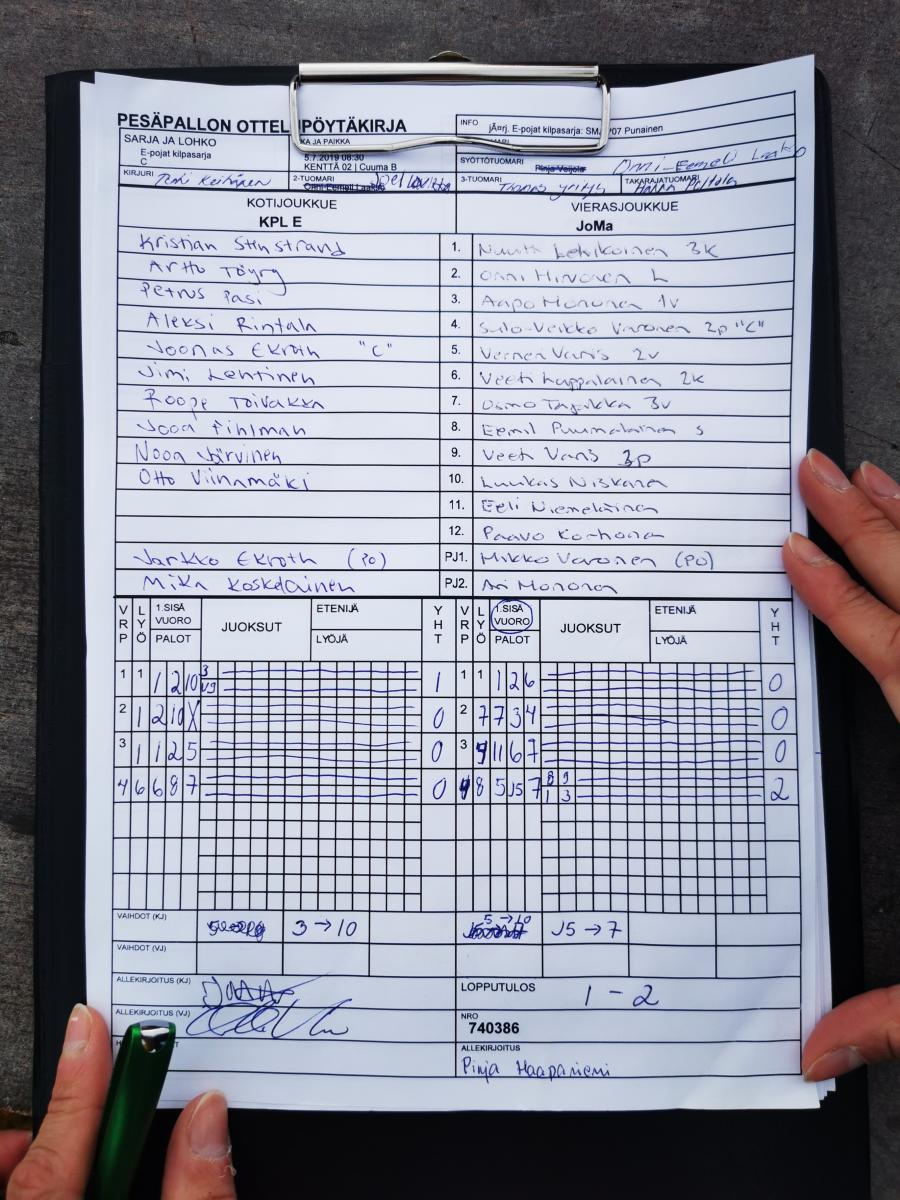 PESÄPALLON OTTEL PÖYTÄKIRJA
INFO jÃ¤rj. E-pojat kilpasarja: SM 07 Punainen
SARJA JA LOHKO
E-pojat kilpasarja
C
KA JA PAIKKA
5.7.2019 08:30
KENTTÄ 02 | Cuuma B
SYÖTTÖTUOMARI Onni-Eemeli
KIRJURI
2-TUOMARI
3-TUOMARI
TAKARAJATUOMARI
KOTIJOUKKUE VIERASJOUKKUE
KPL E JoMa
Kristian Stenstrand 1. Lehikoinen 3k
Arttu Töyry 2. Onni Hirvonen L
Petrus Pasi 3. Aapo Mononen 1v
Aleksi Rintala 4. Sulo-Veikko Varonen 2p "C"
Joonas Ekroth "C" 5. Verneri Varis 2v
Jimi Lehtinen 6. Veeti Lappalainen 2k
Roope Toivakka 7. Osmo 3v
Jooa Fihlman 8. Eemil Puumalainen s
Nooa Järvinen 9. Veeti Varis 3p
Otto Viinamäki 10. Luukas Niskanen
11. Eeli Niemeläinen
12. Paavo Korhonen
Jarkko Ekroth (PO) PJ1. Mikko Varonen (PO)
Mika Koskelainen PJ2. Ari Mononen
VRP LYÖ 1.SISÄ VUORO PALOT JUOKSUT ETENIJÄ LYÖJÄ YHT VRP LYÖ 1.SISÄ VUORO PALOT JUOKSUT ETENIJÄ LYÖJÄ YHT
1 1 1 2 10 3 1 1 1 1 2 6 0
2 1 2 10 X 0 2 7 7 3 4 0
3 1 1 2 5 0 3 1 1 6 7 0
4 6 6 8 7 0 8 5 J5 7 8 9 1 3 2
VAIHDOT (KJ) 3→10 5→10 J5→7
VAIHDOT (VJ)
ALLEKIRJOITUS (KJ)
LOPPUTULOS 1 - 2
ALLEKIRJOITUS (VJ)
NRO
740386
ALLEKIRJOITUS
Pinja Haapaniemi